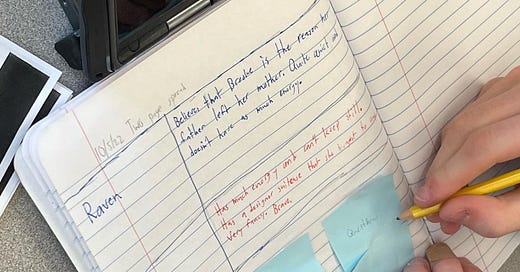 10/5/22 Two page spread
Raven
Believes that Brooke is the reason her
father left her mother. Quite quiet and
doesn't have as much energy.
Has much energy and can't keep still.
Has a designer suitcase that she
very fancy. Brave.